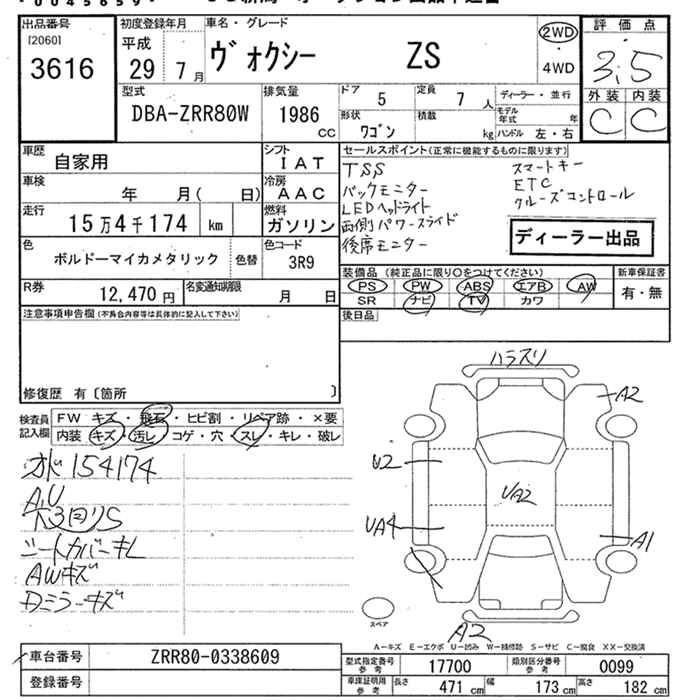 出品番号
[2060]
3616
初度登録年月
平成
29 7月
車名・グレード
ヴォクシー ZS
2WD
・
4WD
評価点
3,5
外装 内装
C C
型式
DBA-ZRR80W
排気量
1986 cc
ドア 5
定員 7 人
形状 ワゴン
積載 kg
ディーラー・並行
モデル年式 年
ハンドル 左・右
車歴
自家用
シフト
IAT
車検
年 月( 日)
冷房
AAC
走行
15万4千174 km
燃料
ガソリン
色
ボルドーマイカメタリック
色替
色コード
3R9
R券
12,470 円
名変通知期限
月 日
セールスポイント(正常に機能するものに限ります)
TSS
バックモニター
LEDヘッドライト
両側パワースライド
後席モニター
スマートキー
ETC
クルーズコントロール
ディーラー出品
装備品(純正品に限り○をつけてください)
新車保証書
PS PW ABS エアB AW
有・無
SR ナビ TV カワ
後日品
注意事項申告欄(不具合内容等は具体的に記入して下さい)
修復歴 有〔箇所 〕
検査員記入欄
FW キズ・飛石・ヒビ割・リペア跡・×要
内装 キズ・汚レ・コゲ・穴・スレ・キレ・破レ
オド154174
シートカバーキレ
AWキズ
Dミラーキズ
ハラスリ
A2
U2
UA2
UA4
A1
スペア
A2
A-キズ E-エクボ U-凹み W-補修跡 S-サビ C-腐食 XX-交換済
車台番号
ZRR80-0338609
登録番号
型式指定番号 参考
17700
類別区分番号 参考
0099
車庫証明用 参考
長さ 471 cm
幅 173 cm
高さ 182 cm